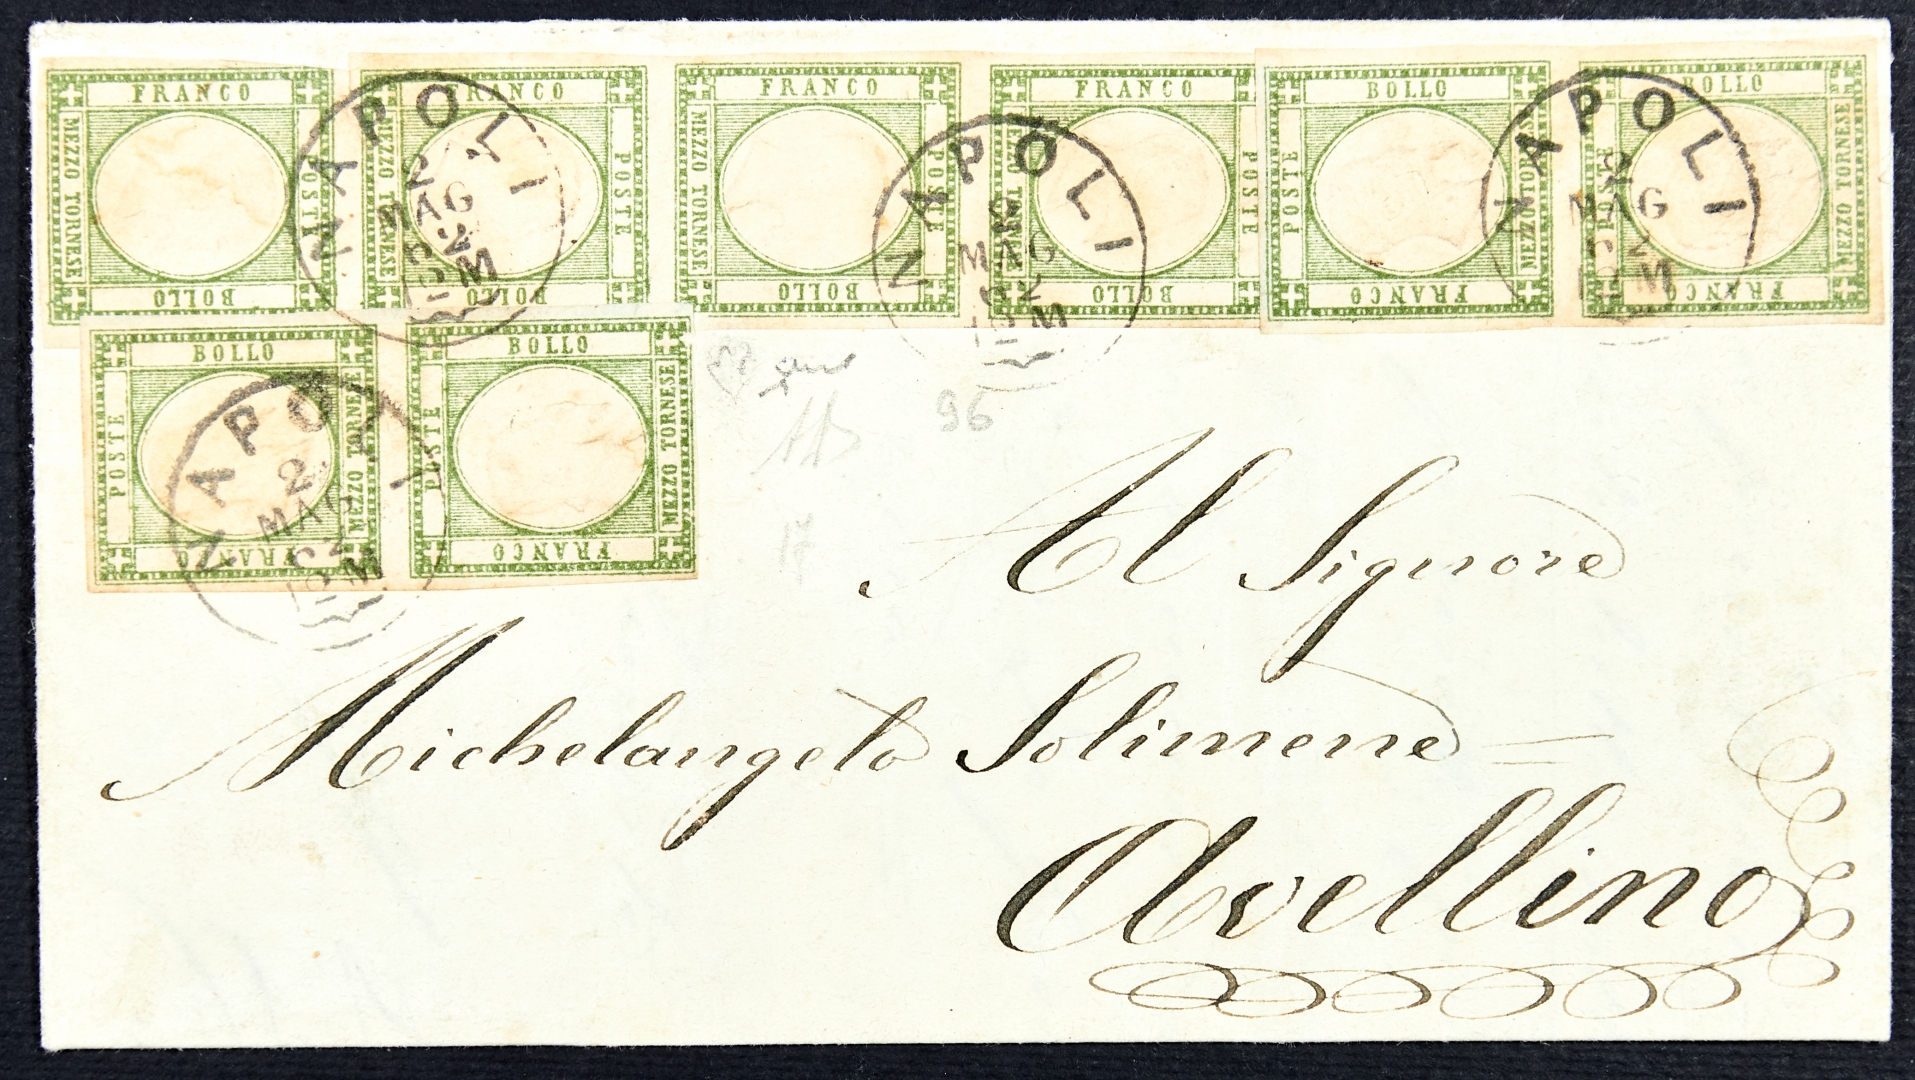 FRANCO FRANCO FRANCO FRANCO BOLLO BOLLO
MEZZO TORNESE POSTE MEZZO TORNESE POSTE MEZZO TORNESE POSTE MEZZO TORNESE POSTE POSTE MEZZO TORNESE POSTE MEZZO TORNESE
BOLLO BOLLO BOLLO BOLLO FRANCO FRANCO
NAPOLI
2 MAG 62
12 M
NAPOLI
2 MAG 62
12 M
NAPOLI
2 MAG 62
12 M
BOLLO BOLLO
POSTE MEZZO TORNESE POSTE MEZZO TORNESE
FRANCO FRANCO
NAPOLI
2 MAG 62
12 M
96
17
Al Signore
Michelangelo Solimene =
Avellino